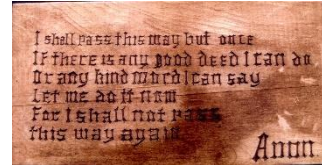 I shall pass this way but once
If there is any good deed I can do
Or any kind word I can say
Let me do it now
For I shall not pass
this way again
Anon